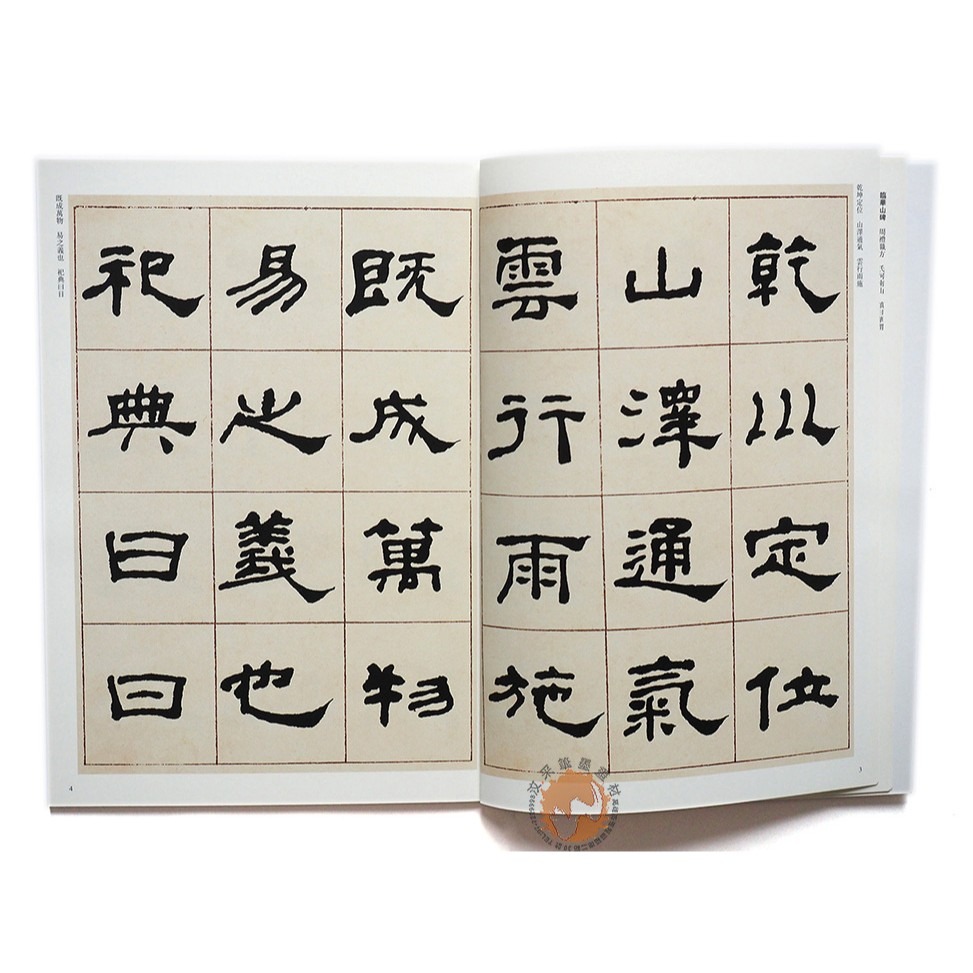 臨華山碑 周禮職方
乾坤定位 山澤通氣 雲行雨施
乾巛定位
山澤通氣
雲行雨施
3
既成萬物
易之義也
祀典曰日
既成萬物 易之義也 祀典曰日
4
汶采筆墨畫材